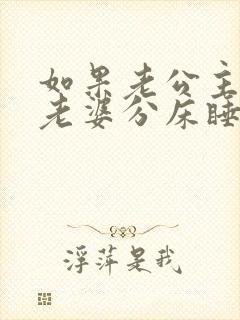 如果老公主
老婆分床睡
浮萍是我